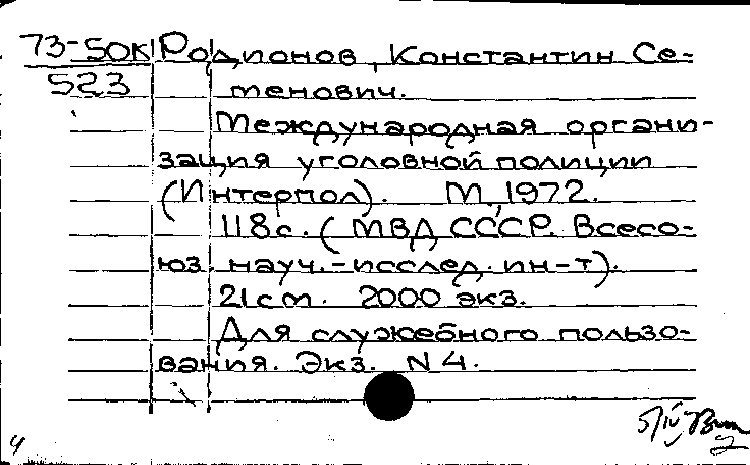 73-50К Родионов, Константин Се-
523 менович.
Международная органи-
зация уголовной полиции
(Интерпол). М, 1972.
118с. (МВД СССР. Всесо-
юз. науч.-исслед. ин-т).
21см. 2000 экз.
Для служебного пользо-
вания. Экз. N 4.
5/IV
4